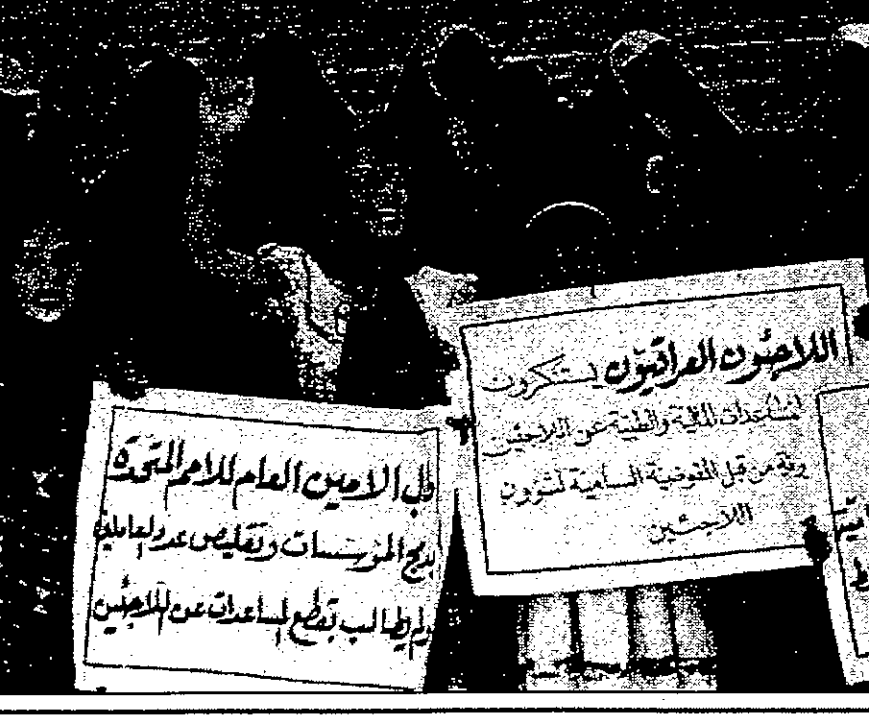 اللاجئون العراقيون يستنكرون
المالية والطبية عن اللاجئين
من قبل المفوضية السامية لشؤون
اللاجئين
الامين العام للامم المتحدة
بدمج المؤسسات وتقليص عدد العاملين
ولم يطالب بقطع المساعدات عن اللاجئين